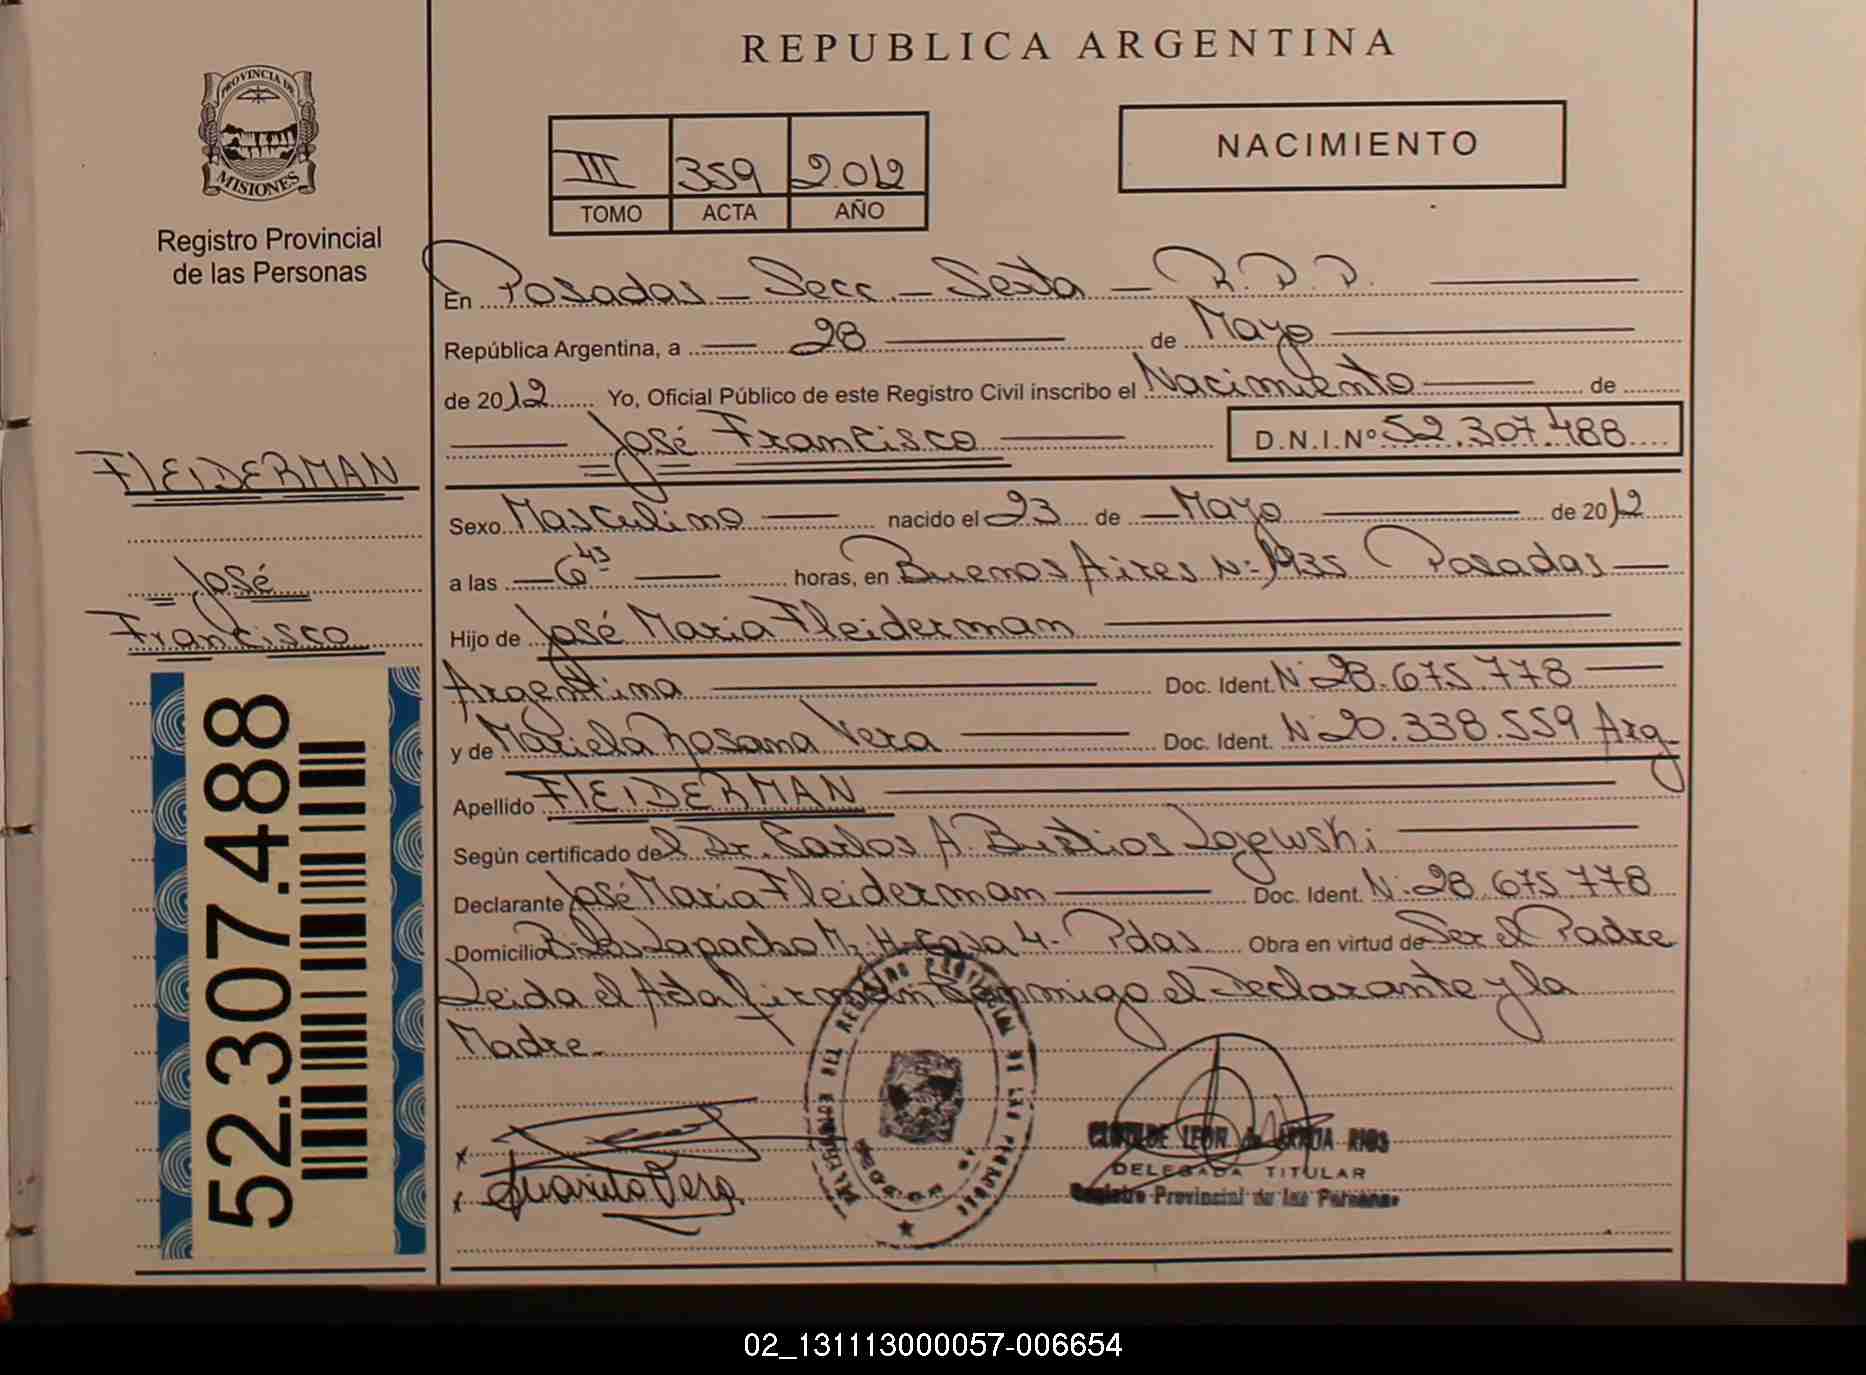 REPUBLICA ARGENTINA
PROVINCIA DE
MISIONES
Registro Provincial
de las Personas
III 359 2.012
TOMO ACTA AÑO
NACIMIENTO
En Posadas - Secc. - Sexta - R.P.P.
República Argentina, a 28 de Mayo
de 2012 Yo, Oficial Público de este Registro Civil inscribo el Nacimiento de
José Francisco D.N.I.Nº 52.307.488
FLEIDERMAN
José
Francisco
52.307.488
Sexo Masculino nacido el 23 de Mayo de 2012
a las 6 45 horas, en Buenos Aires Nº 1935 Posadas
Hijo de José Maria Fleiderman
Argentina Doc. Ident. Nº 28.675.778
y de Mariela Rosana Vera Doc. Ident. Nº 20.338.559 Arg.
Apellido FLEIDERMAN
Según certificado del Dr. Carlos A. Bustios
Declarante José Maria Fleiderman Doc. Ident. Nº 28.675.778
Domicilio Lapacho Mz H Casa 4 - Pdas Obra en virtud de Ser el Padre
Leida el Acta firman Conmigo el Declarante y la
Madre.
REGISTRO PROVINCIAL DE LAS PERSONAS
DELEGADA TITULAR
Registro Provincial de las Personas
02_131113000057-006654